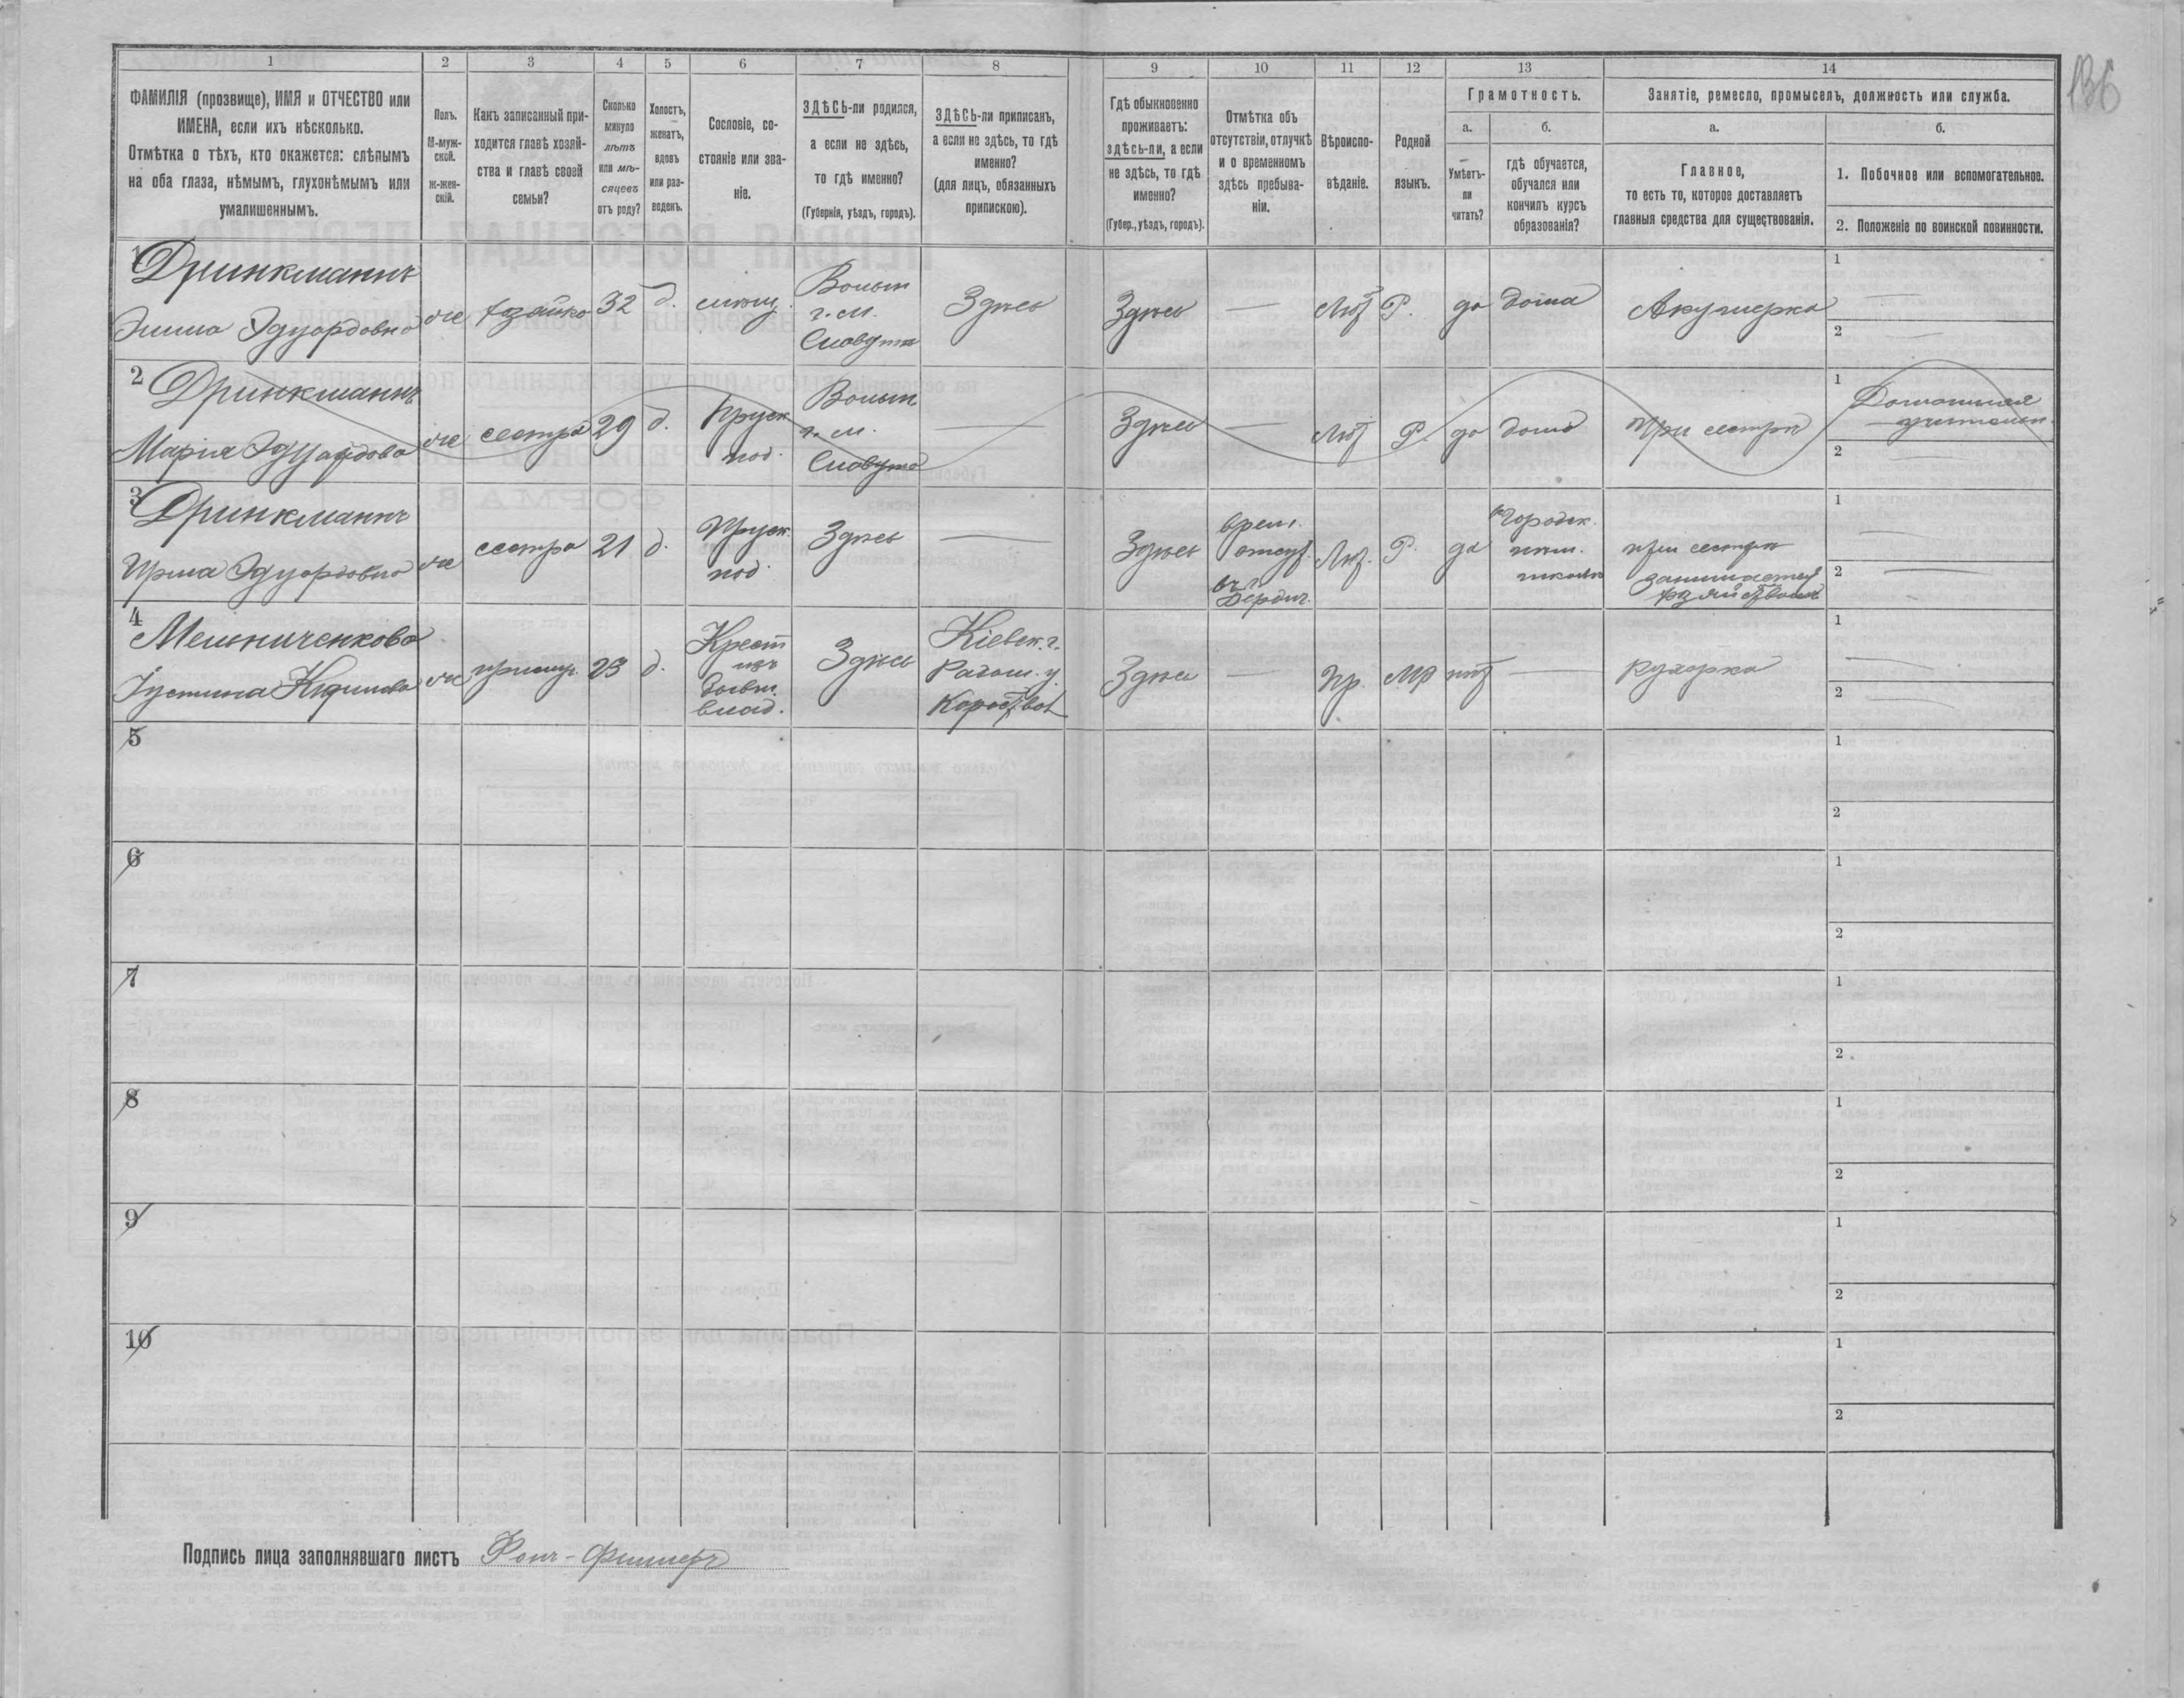 136
1 2 3 4 5 6 7 8 9 10 11 12 13 14
ФАМИЛІЯ (прозвище), ИМЯ и ОТЧЕСТВО или
ИМЕНА, если ихъ нѣсколько.
Отмѣтка о тѣхъ, кто окажется: слѣпымъ
на оба глаза, нѣмымъ, глухонѣмымъ или
умалишеннымъ.
Полъ.
М-муж-
ской.
ж-жен-
скій.
Какъ записанный при-
ходится главѣ хозяй-
ства и главѣ своей
семьи?
Сколько
минуло
лѣтъ
или мѣ-
сяцевъ
отъ роду?
Холостъ,
женатъ,
вдовъ
или раз-
веденъ.
Сословіе, со-
стояніе или зва-
ніе.
ЗДѢСЬ-ли родился,
а если не здѣсь,
то гдѣ именно?
(Губернія, уѣздъ, городъ).
ЗДѢСЬ-ли приписанъ,
а если не здѣсь, то гдѣ
именно?
(для лицъ, обязанныхъ
припискою).
Гдѣ обыкновенно
проживаетъ:
здѣсь-ли, а если
не здѣсь, то гдѣ
именно?
(Губер., уѣздъ, городъ).
Отмѣтка объ
отсутствіи, отлучкѣ
и о временномъ
здѣсь пребыва-
ніи.
Вѣроиспо-
вѣданіе.
Родной
языкъ.
Грамотность.
а.
Умѣетъ-
ли
читать?
б.
гдѣ обучается,
обучался или
кончилъ курсъ
образованія?
Занятіе, ремесло, промыселъ, должность или служба.
а.
Главное,
то есть то, которое доставляетъ
главныя средства для существованія.
б.
1. Побочное или вспомогательное.
2. Положеніе по воинской повинности.
1
Дринкманнъ
Эмма Эдуардовна
же
хозяйка
32
д.
Волын
г. м.
Славута
Здѣсь
Здѣсь
—
Лют
Р.
да
дома
Акушерка
1 —
2 —
2
Дринкманнъ
Марія Эдуардова
же
сестра
29
д.
Пруск.
под.
Волын
г. м.
Славута
—
Здѣсь
—
Лют
Р.
да
дома
При сестрѣ
1
Домашняя
учительн.
2 —
3
Дринкманнъ
Ирма Эдуардовна
же
сестра
21
д.
Пруск.
под.
Здѣсь
—
Здѣсь
врем.
отсут.
въ г.
Бердич.
Лют.
Р.
да
въ Городск.
школѣ
при сестрѣ
занимается
хозяйствомъ
1 —
2 —
4
Мельниченкова
Іустина
же
прислуг.
23
д.
Крест
изъ
бывш.
влад.
Здѣсь
Кіевск. г.
Радом. у.
Здѣсь
—
Пр.
МР
нѣт
—
кухарка
1 —
2 —
5
1
2
6
1
2
7
1
2
8
1
2
9
1
2
10
1
2
Подпись лица заполнявшаго листъ Фонъ-Фишеръ